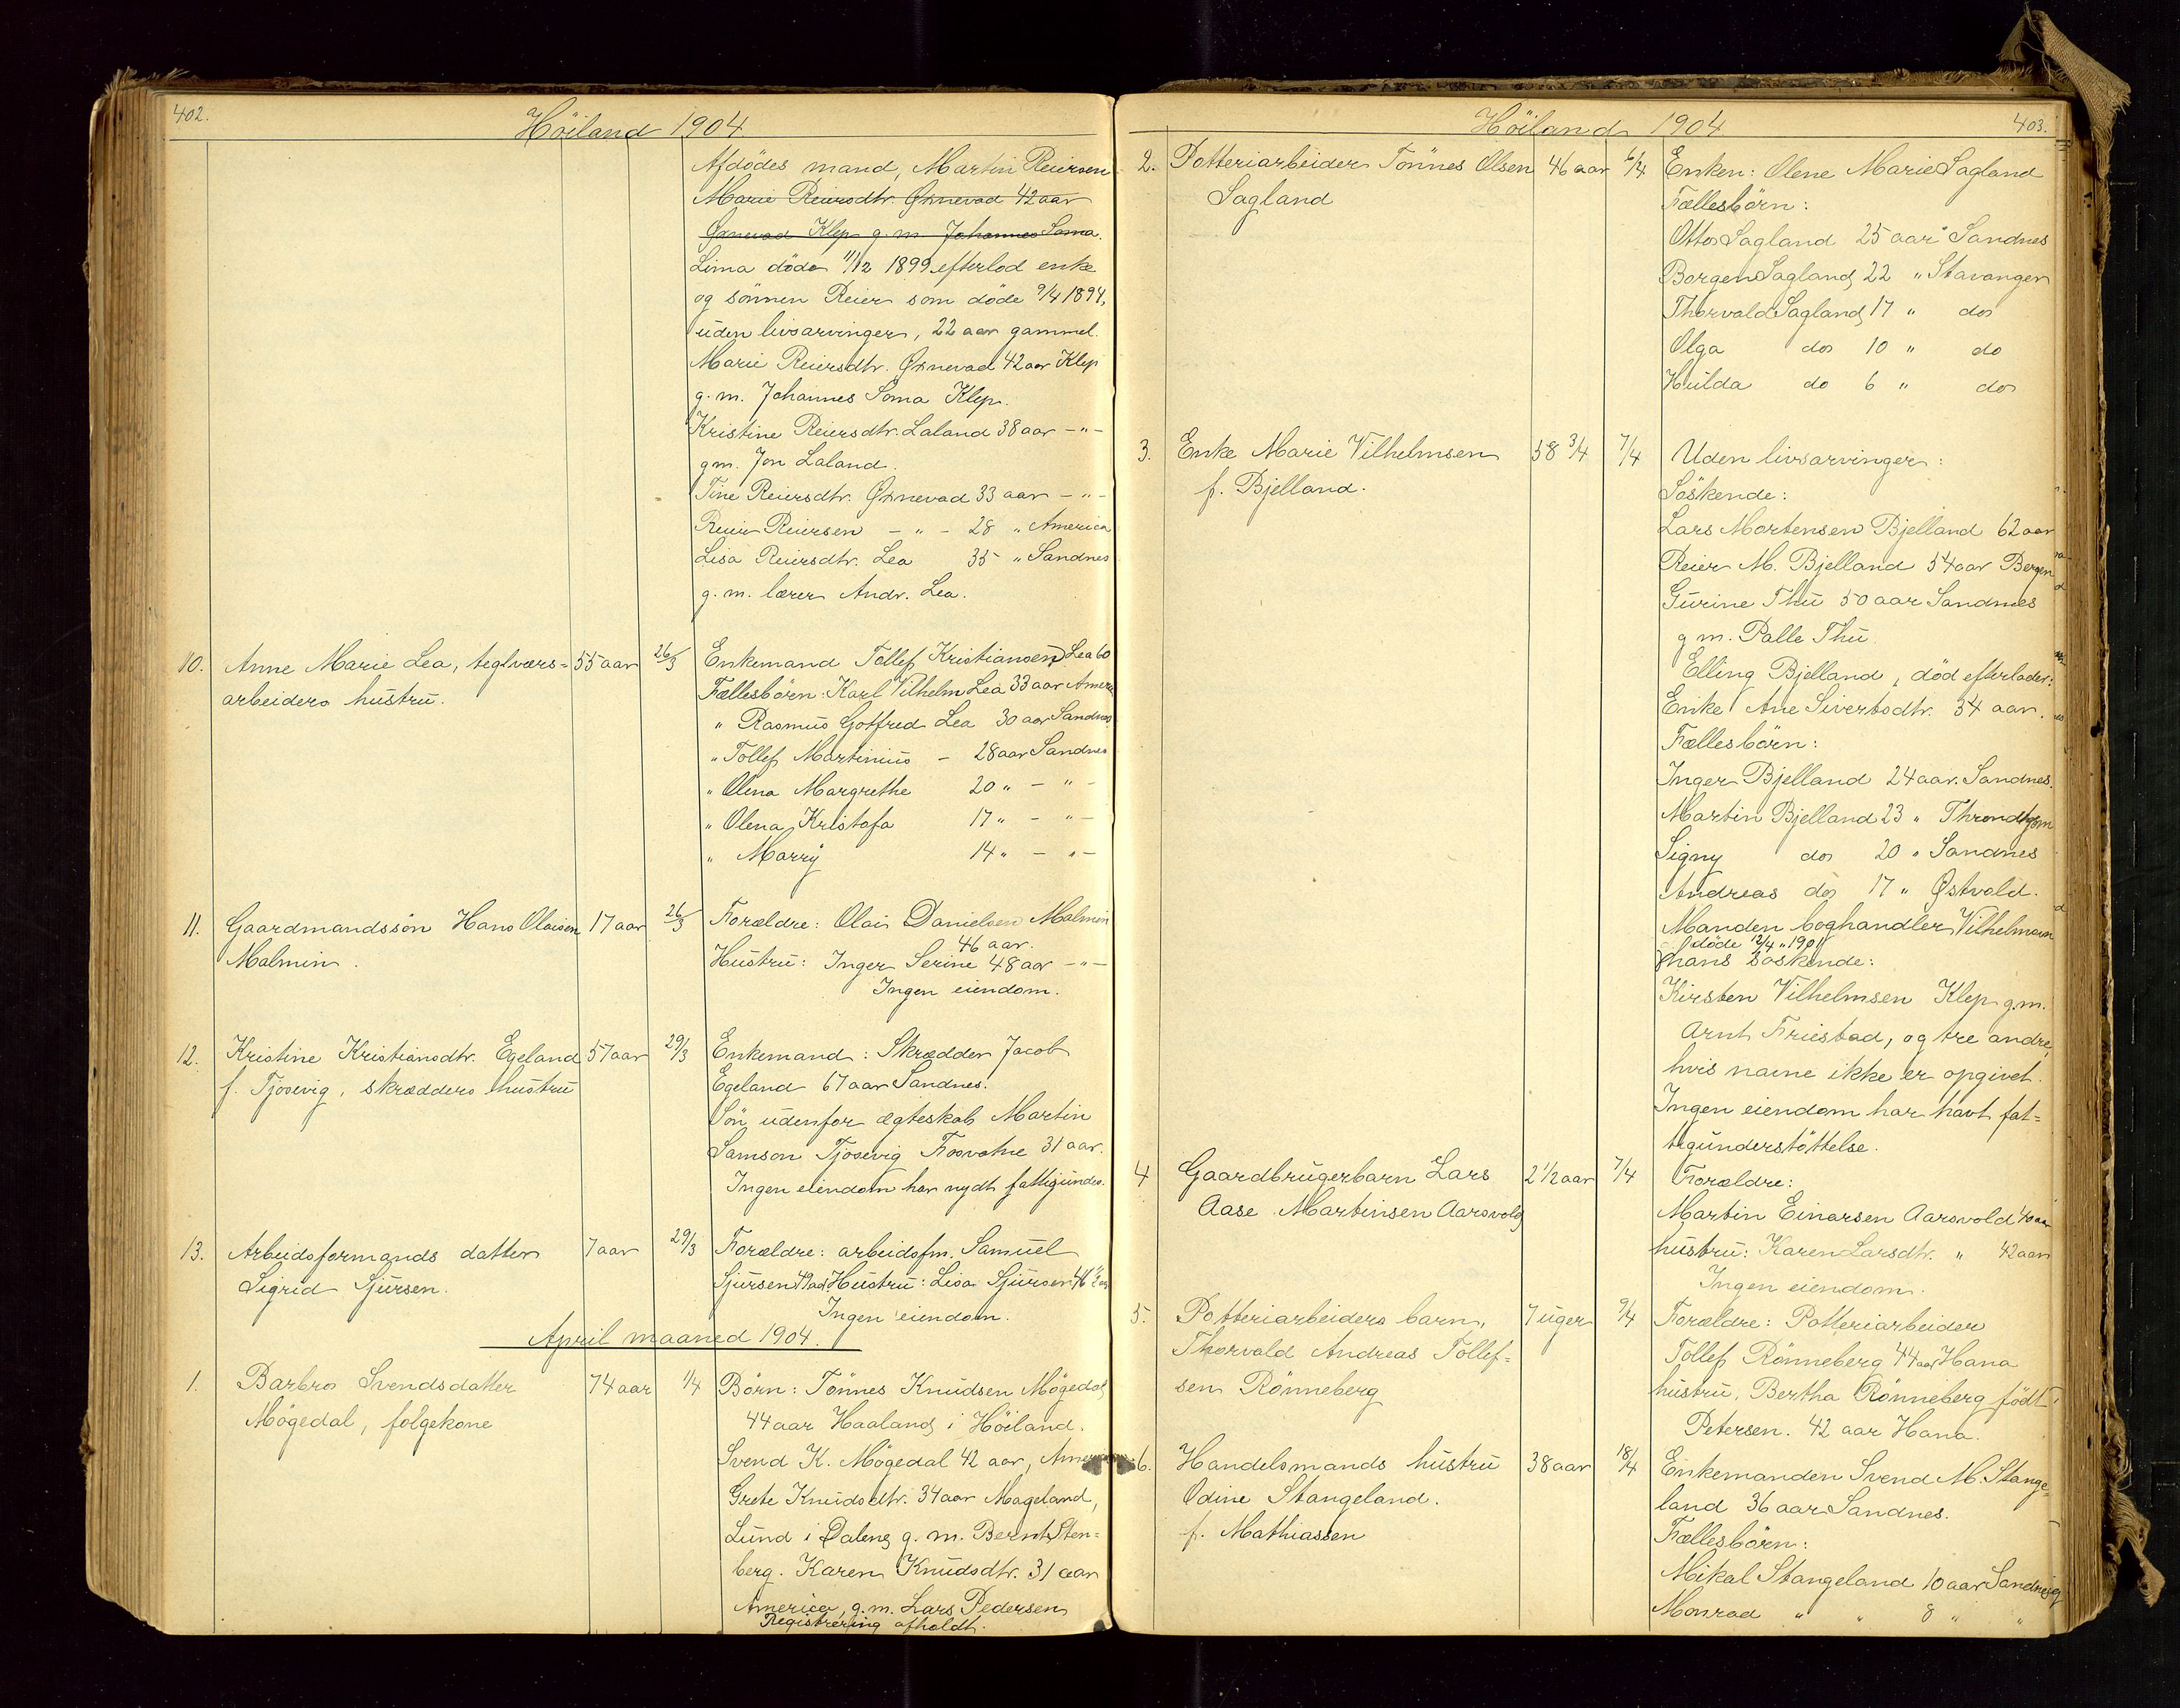 402.
Höiland 1904
Afdödes mand, Martin Reiersen
Marie Reiersdtr. Öxnevad 42 aar
Öxnevad Klep g. m. Johannes Soma.
Lima döde 11/12 1899 efterlod enke
og sönnen Reier som döde 9/4 1894,
uden livsarvinger, 22 aar gammel.
Marie Reiersdtr. Öxnevad 42 aar Klep
g. m. Johannes Soma Klep.
Kristine Reiersdtr. Laland 38 aar - " -
gm. Jon Laland.
Tine Reiersdtr. Öxnevad 33 aar - " -
Reier Reiersen - " - 28 " America
Lisa Reiersdtr. Lea 35 " Sandnes
g. m. lærer Andr. Lea.
10. Anne Marie Lea, teglværs= 55 aar 26/3 Enkemand Tollef Kristiansen Lea 60
arbeiders hustru. Fællesbörn: Karl Vilhelm Lea 33 aar Amer
" Rasmus Gotfred Lea 30 aar Sandnes
" Tollef Martinius - 28 aar Sandnes
" Olena Margrethe 20 " - " -
" Olena Kristofa 17 " - " -
" Marry 14 " - " -
11. Gaardmandssön Hans Olaisen 17 aar 26/3 Forældre: Olais Danielsen Malmin
Malmin. 46 aar.
Hustru: Inger Serine 48 aar - " -
Ingen eiendom.
12. Kristine Kristiansdtr. Egeland 57 aar 29/3 Enkemand: Skrædder Jacob
f. Tjosevig, skrædders hustru Egeland 67 aar Sandnes.
Sön udenfor ægteskab Martin
Samson Tjosevig Fosvatne 31 aar.
Ingen eiendom har nydt fattigunders.
13. Arbeidsformands datter 7 aar 29/3 Forældre: arbeidsfm. Samuel
Sigrid Sjursen. Sjursen 49 aar Hustru: Lisa Sjursen 46 1/2 aar
Ingen eiendom.
April maaned 1904.
1. Barbro Svendsdatter 74 aar 1/4 Börn: Tönnes Knudsen Mögedal
Mögedal, folgekone 44 aar Haaland i Höiland.
Svend K. Mögedal 42 aar, Amer
Grete Knudsdtr. 34 aar Mageland,
Lund i Dalene g. m. Bernt Sten=
berg. Karen Knudsdtr. 31 aar
America, g. m. Lars Pedersen
Registrering afholdt.
Höiland 1904 403.
2. Potteriarbeider Tönnes Olsen 46 aar 6/4 Enken: Olene Marie Sagland
Sagland Fællesbörn:
Otto Sagland 25 aar Sandnes
Borgen Sagland 22 " Stavanger
Thorvald Sagland 17 " do
Olga do 10 " do
Hulda do 6 " do
3. Enke Marie Vilhelmsen 58 3/4 7/4 Uden livsarvinger:
f. Bjelland. Söskende:
Lars Mortensen Bjelland 62 aar
Reier M. Bjelland 54 aar Bergen
Gurine Thu 50 aar Sandnes
g m. Palle Thu
Elling Bjelland, död efterlader:
Enke Ane Sivertsdtr. 54 aar.
Fællesbörn:
Inger Bjelland 24 aar. Sandnes.
Martin Bjelland 23 " Throndhjem
Signy do 20 " Sandnes
Andreas do 17 " Østvold.
Manden boghandler Vilhelmsen
döde 12/4 1901
hans söskende:
Kirsten Vilhelmsen Klep g.m.
Arnt Friestad, og tre andre,
hvis navne ikke er opgivet.
Ingen eiendom har havt fat=
tigunderstöttelse.
4 Gaardbrugerbarn Lars 2 1/2 aar 7/4 Forældre:
Aase Martinsen Aarsvold Martin Einarsen Aarsvold 40 aar
hustru: Karen Larsdtr. " 42 aar
Ingen eiendom.
5. Potteriarbeiders barn, 7 uger 9/4 Forældre: Potteriarbeider
Thorvald Andreas Tollef= Tollef Rönneberg 44 aar Hana
sen Rönneberg hustru, Bertha Rönneberg födt
Petersen. 42 aar Hana.
6. Handelsmands hustru 38 aar 18/4 Enkemanden Svend M. Stange=
Odine Stangeland. land 36 aar Sandnes.
f. Mathiassen Fællesbörn:
Mikal Stangeland 10 aar Sandnes
Monrad " " 8 " "